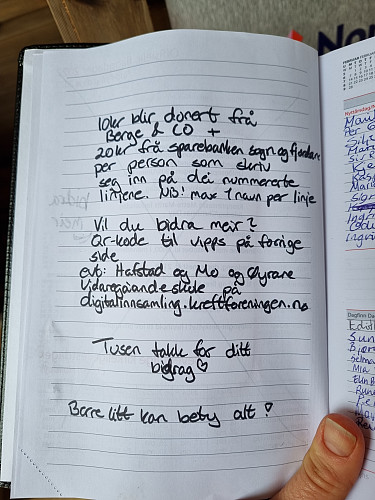 10kr blir donert frå
Berge & CO +
20kr frå sparebanken sogn og fjordane
per person som skriv
seg inn på dei nummererte
linjene. NB! max 1 navn per linje
Vil du bidra meir?
Qr-kode til vipps på forrige
side
evt: Hafstad og Mo og Øyrane
Vidaregåande skule på
digitalinnsamling.kreftforeningen.no
Tusen takk for ditt
bidrag♡
Berre litt kan bety alt!
Nyttårsdag
Dagfinn Da